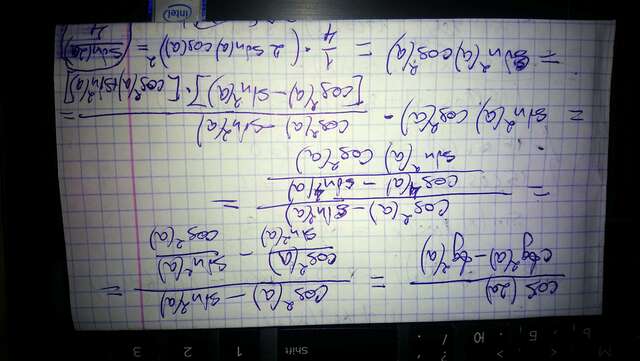 cos(2a) / (ctg²(a) - tg²(a)) = (cos²(a) - sin²(a)) / (cos²(a)/sin²(a) - sin²(a)/cos²(a)) =
= (cos²(a) - sin²(a)) / ((cos⁴(a) - sin⁴(a)) / (sin²(a) cos²(a))) =
= sin²(a) · cos²(a) · (cos²(a) - sin²(a)) / ([cos²(a) - sin²(a)] · [cos²(a) + sin²(a)]) =
= sin²(a) cos²(a) = 1/4 · (2 sin(a) cos(a))² = sin²(2a) / 4
intel
Shift
1
2
3